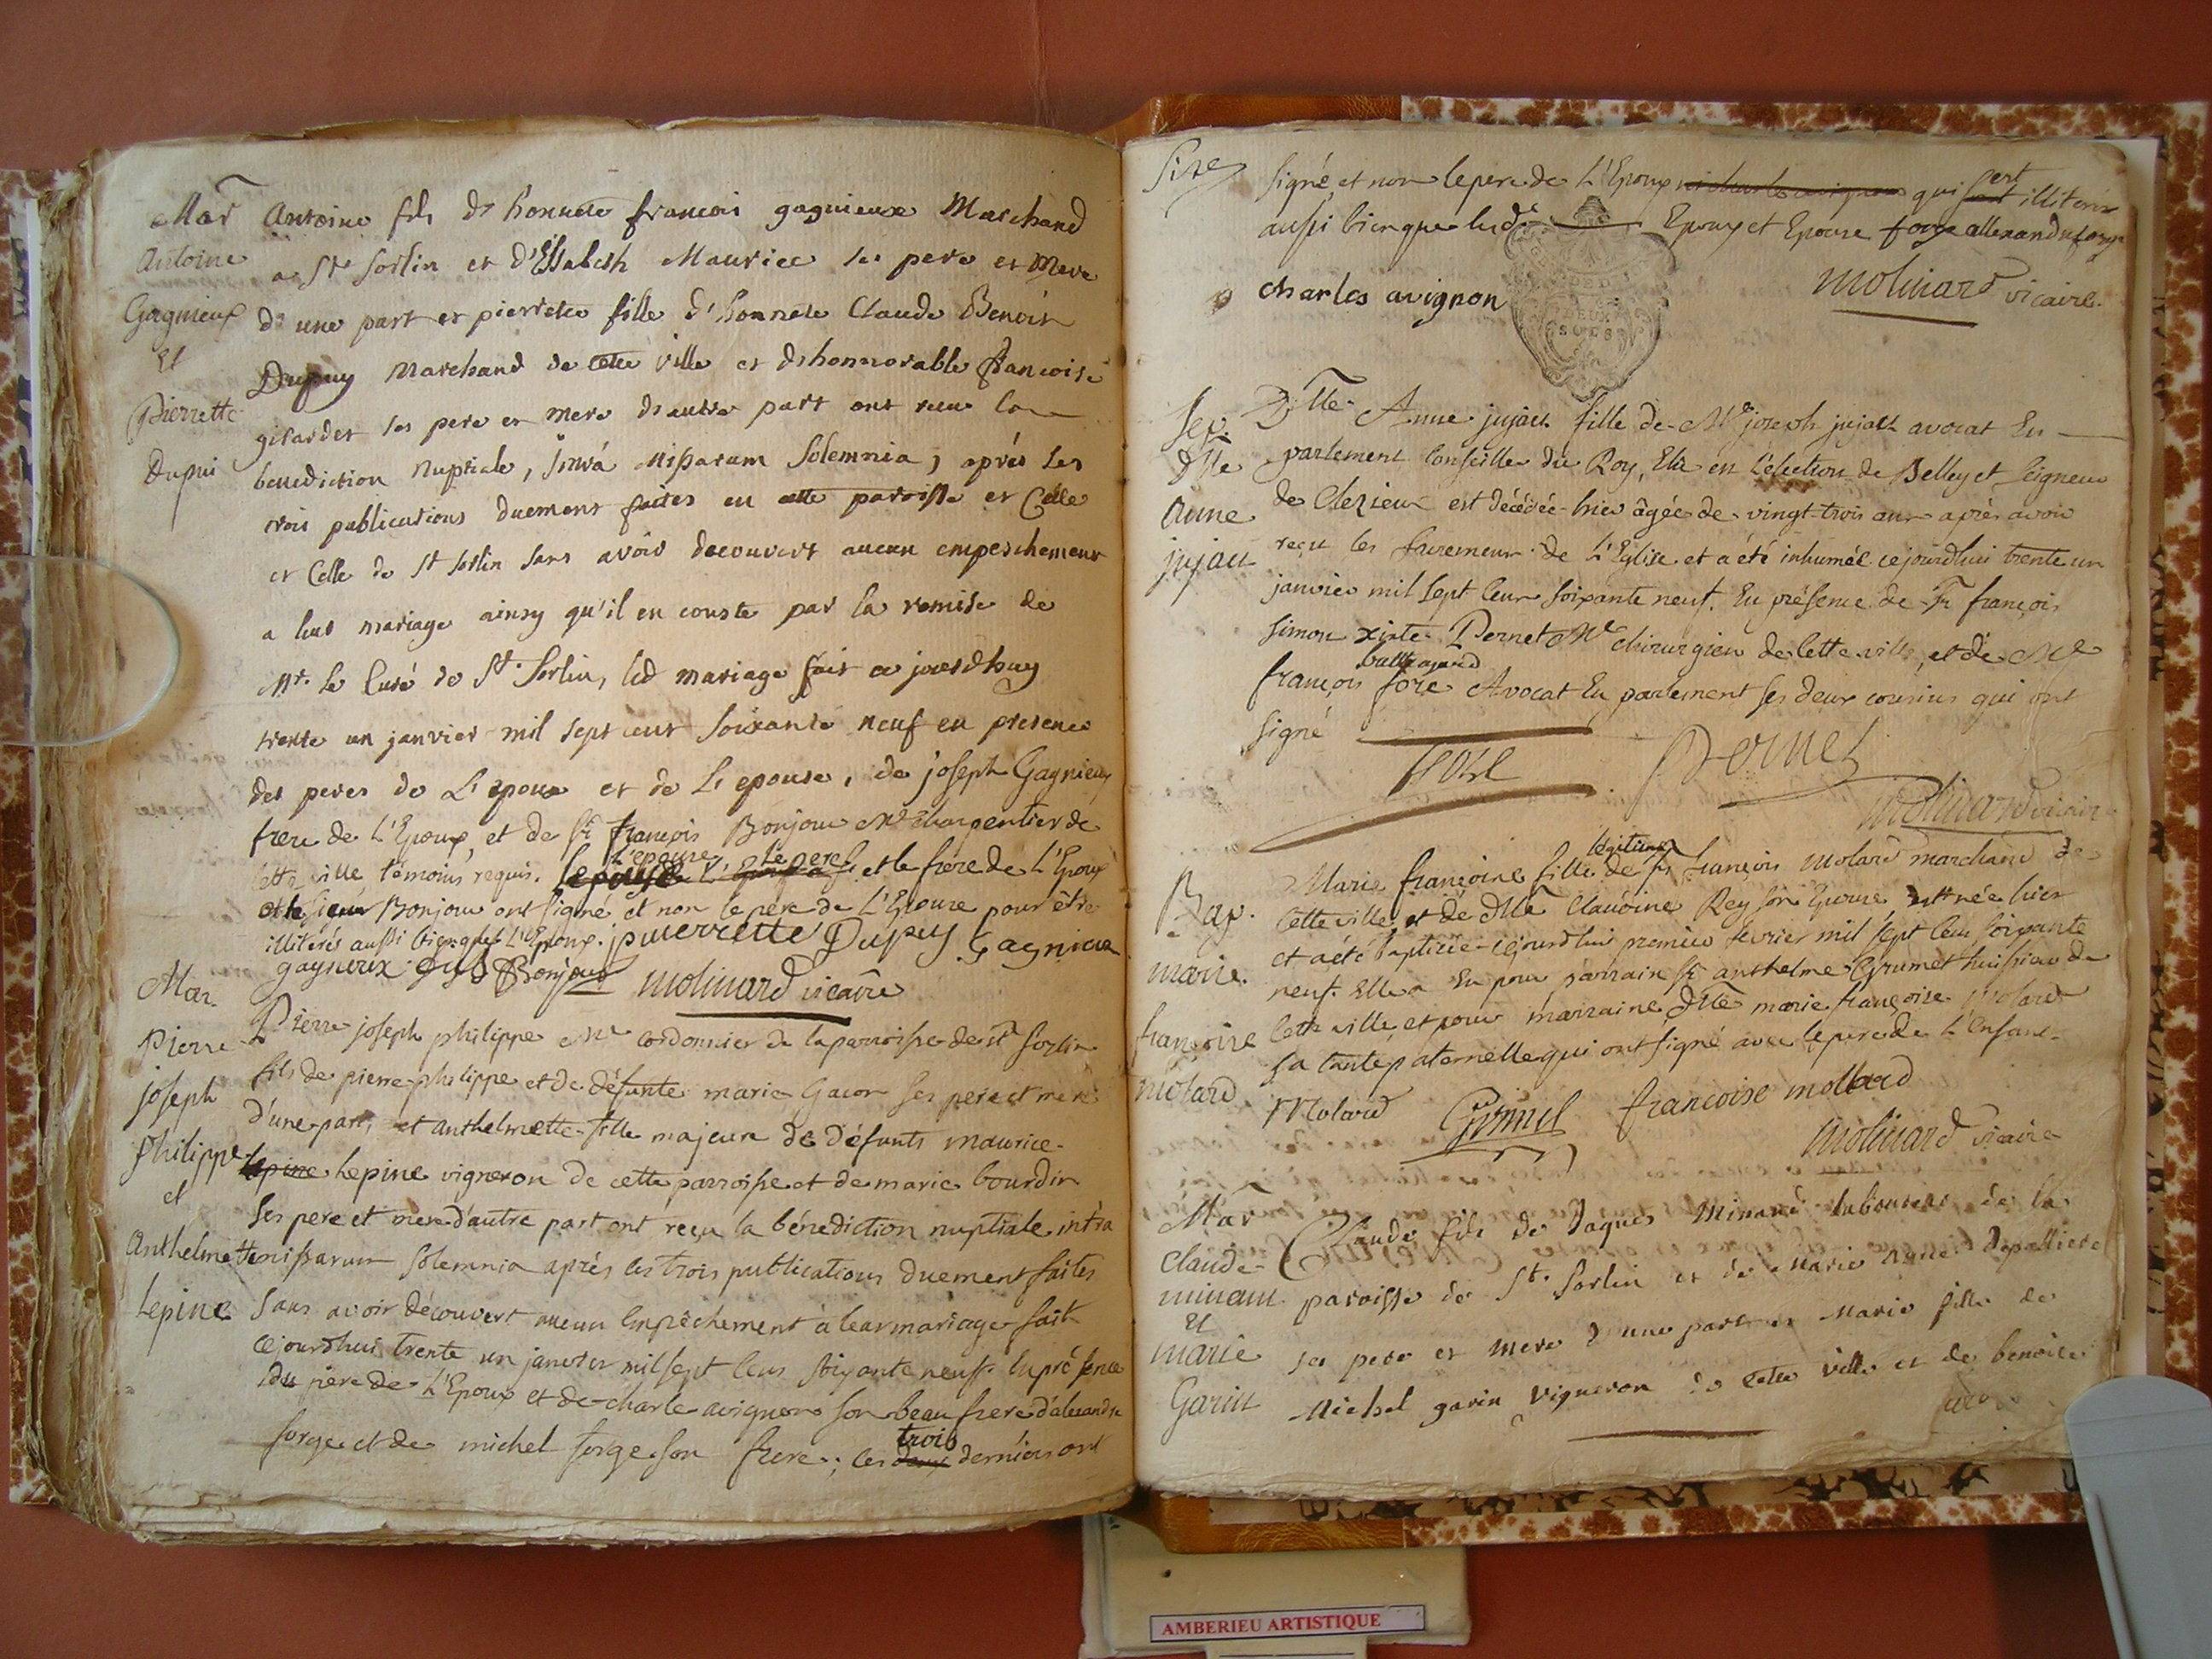 Mar
Antoine
Gagnieux
Et
Pierrette
Dupui
Antoine fils de honnete francois gagnieux Marchand
a St Sorlin et d'Elisabeth Maurice ses pere et Mere
de une part et pierrette fille d'honnete Claude Benoit
Dupuy Marchand de cette ville et de honnorable francoise
girardet ses pere et mere d'autre part ont recu la
benediction Nuptiale, intrà Missarum Solemnia, aprés les
trois publications duement faites en cette paroisse et Celle
et Celle de St Sorlin sans avoir decouvert aucun empeschement
a leur mariage ainsy qu'il en conste par la remise de
Mr. le Curé de St. Sorlin, led mariage fait ce jourdhuy
trente un janvier mil sept cent soixante neuf en presence
des peres de L'epoux et de L'epouse, de joseph Gagnieux
frere de L'Epoux, et de Sr françois Bonjour Me charpentier de
cette ville témoins requis. L'epouse Le pere et le frére de L'Epoux
et le sieur Bonjour ont signé et non le pere de L'Epouse pour être
illiterés aussi bien que L'Epoux. pierrette Dupuy Gagnieux
gagneux Bonjour Molinard vicaire
Mar.
Pierre
joseph
Philippe
et
Anthelmette
Lepine
Pierre joseph philippe Me cordonnier de la parroisse de St Sorlin
fils de pierre philippe et de défunte marie Gacon ses pere et mere
d'une part, et anthelmette fille majeure de défunts maurice
lepine Lepine vigneron de cette parroisse et de marie bourdin
ses pere et mere d'autre part ont reçu la bénediction nuptiale intra
missarum solemnia aprés les trois publications duement faites
sans avoir découvert aucun Empêchement à leur mariage fait
cejourdhui trente un janvier mil sept cens soixante neuf. En présence
du père de L'Epoux et de charle avignon son beau frere d'alexandre
forge et de michel forge son frere; les deux trois derniers ont
Sixe
signé et non le pere de L'Epoux ni charles avignon qui sont est illiteré
aussi bien que lesd. Epoux et Epouse forge allexandre forge
charles avignon
Molinard vicaire.
DEUX
SOLS
Sep.
Dlle
Anne
jujat
Dlle Anne jujat fille de Me joseph jujat avocat En
parlement Conseiller du Roy, Elû en L'élection de Belley et seigneur
de Clezieux est décédée hier âgée de vingt-trois ans après avoir
reçu les sacremens de L'Eglise et a été inhumée cejourdhui trente un
janvier mil sept cens soixante neuf. En présence de Sr françois
simon sixte Pernet Me chirurgien de cette ville, et de Me
françois balthazard fore Avocat En parlement ses deux cousins qui ont
signé
fore
Pernet
Molinard vicaire
Bap.
marie
françoise
molard
Marie françoise fille légitime de Sr françois Molard marchand de
cette ville et de Dlle Claudine Rey son Epouse est née hier
et a été baptisée cejourdhui premier fevrier mil sept cens soixante
neuf. Elle a Eu pour parrain Sr anthelme Grumet huissier de
cette ville et pour marraine Dlle marie françoise Molard
sa tante paternelle qui ont signé avec le pere de L'Enfant.
Molard Grumet francoise mollard
Molinard vicaire
Mar
Claude
minand
Et
marie
Garin
Claude fils de Jaques Minand laboureur de la
paroisse de St. Sorlin et de Marie Anne depalliere
ses pere et mere d'une part et Marie fille de
Michel garin vigneron de cette ville et de benoite
AMBERIEU ARTISTIQUE